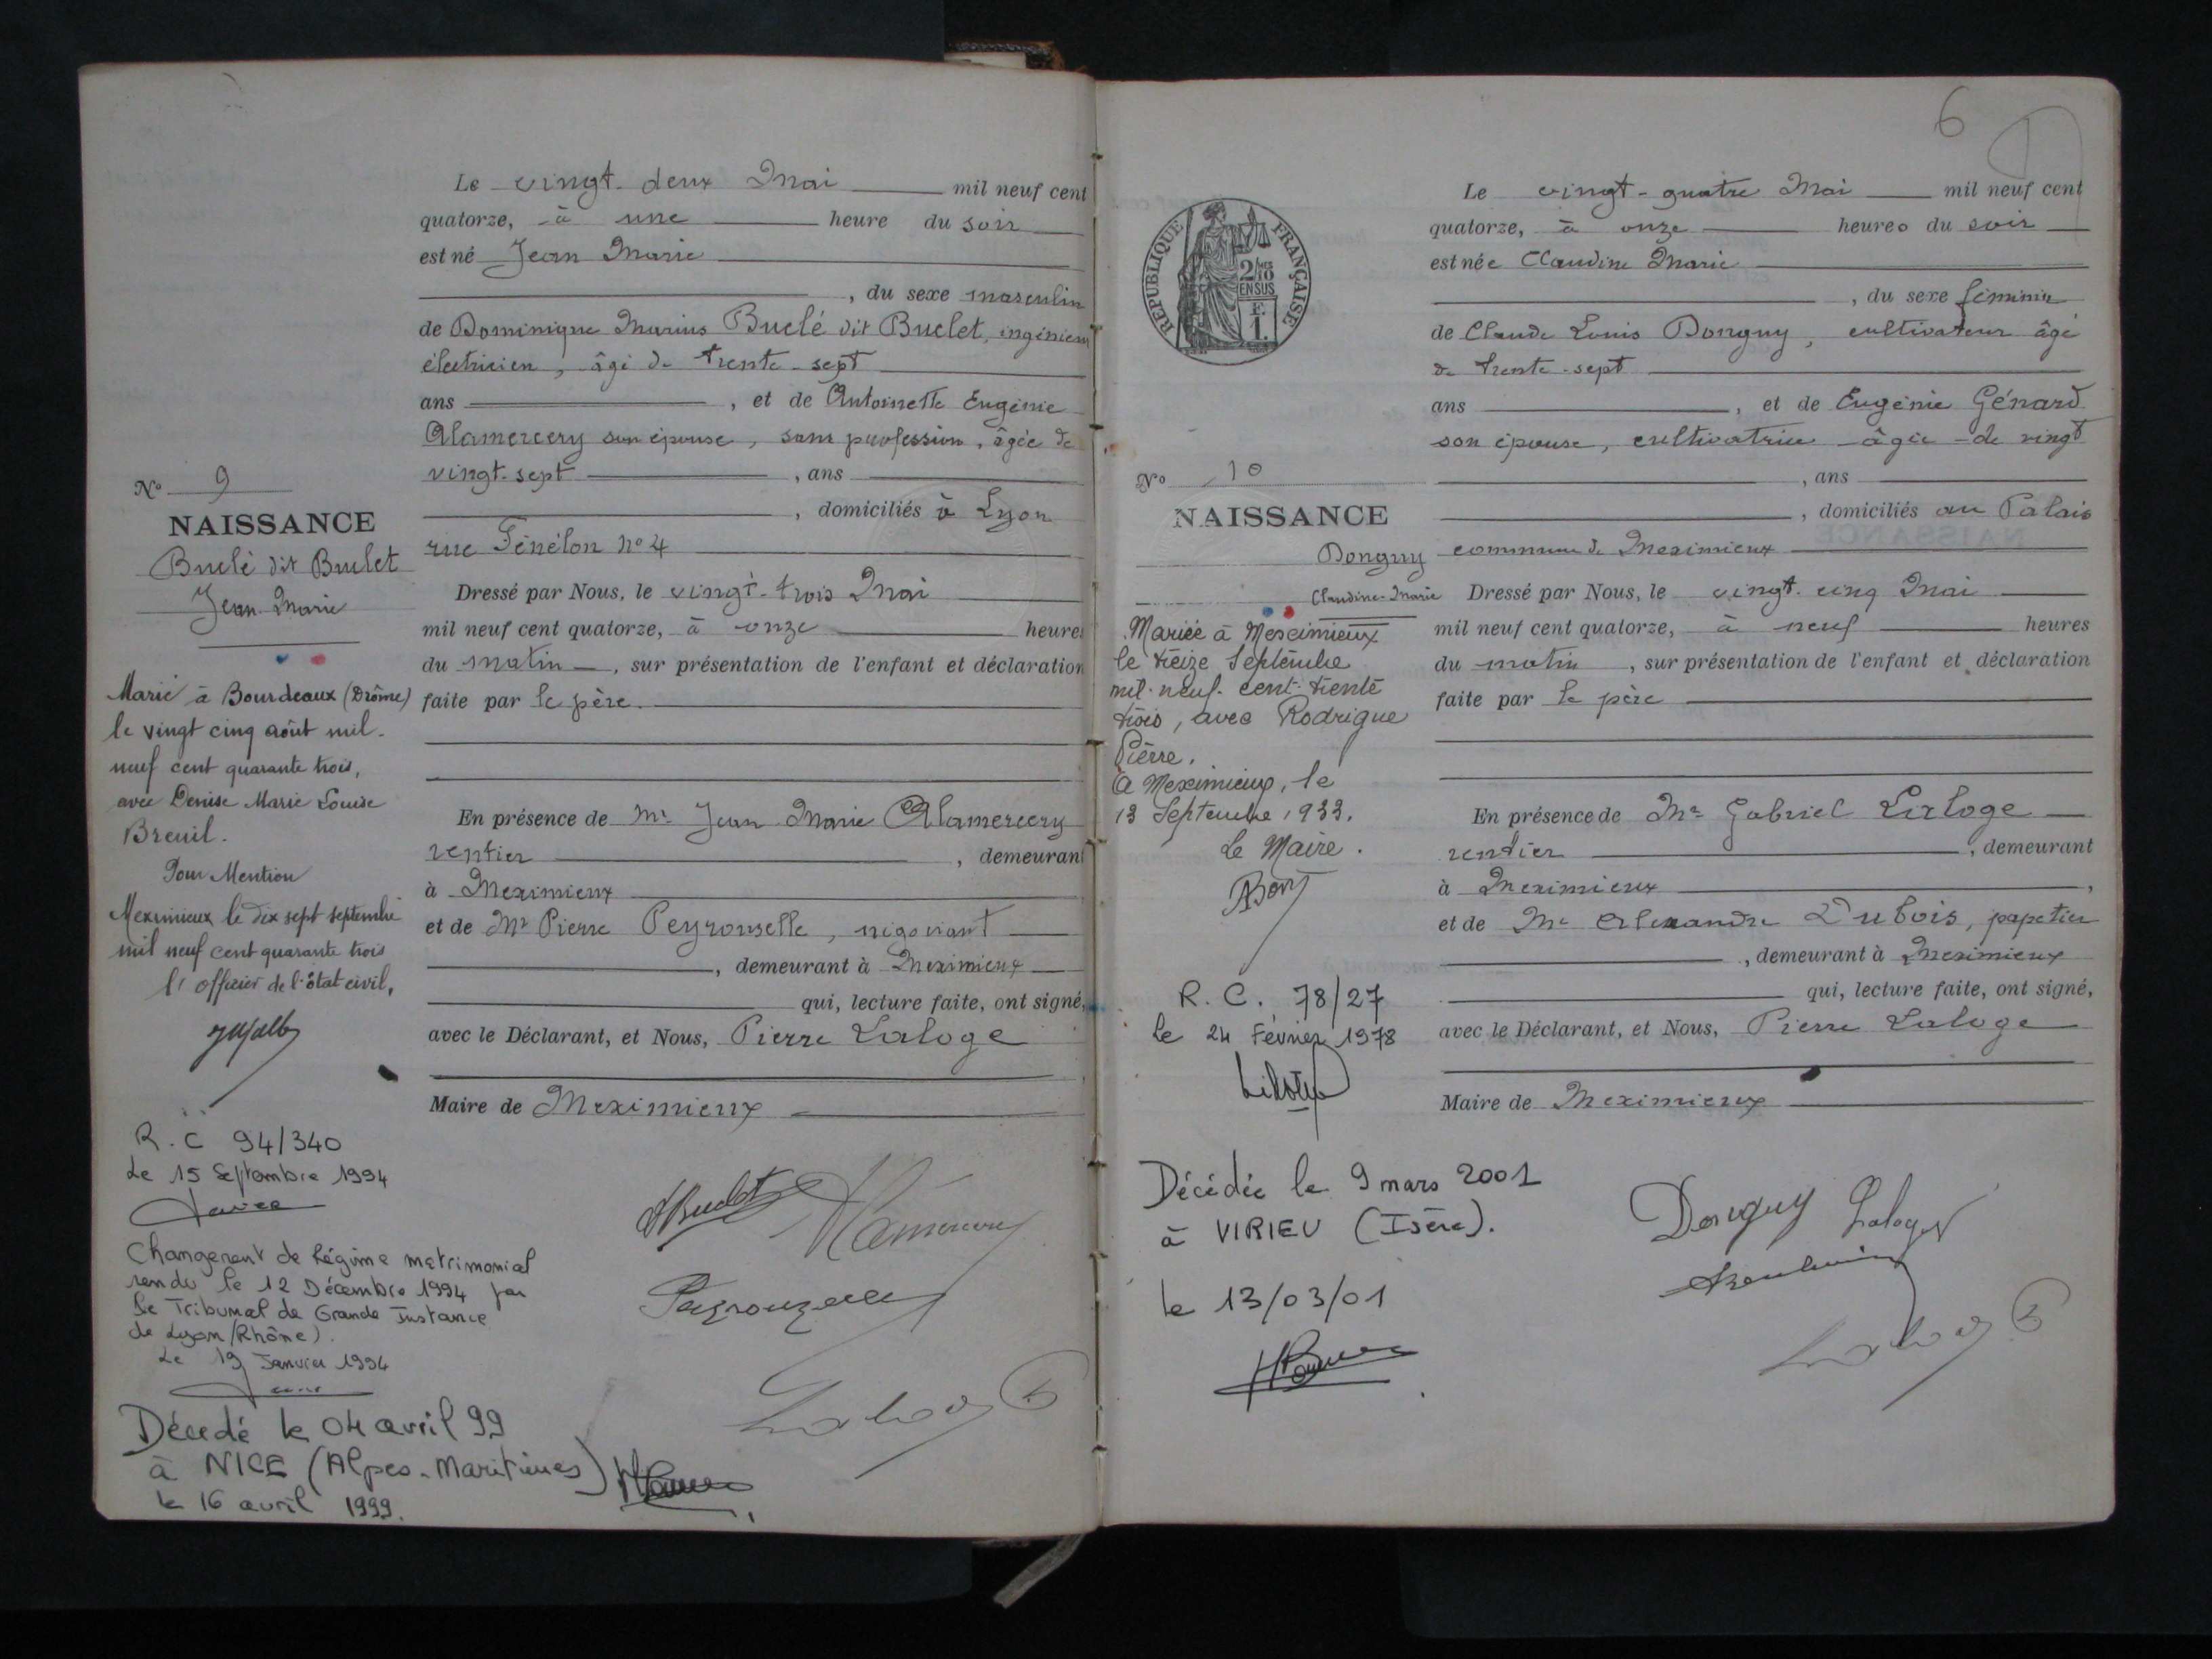 Le vingt-deux Mai mil neuf cent
quatorze, à une heure du soir
est né Jean Marie
, du sexe masculin
de Dominique Marius Buclé dit Buclet, ingénieur
électricien, âgé de trente-sept
ans , et de Antoinette Eugénie
Alamercery son épouse, sans profession, âgée de
vingt-sept , ans
, domiciliés à Lyon
rue Fénélon no 4
Dressé par Nous, le vingt-trois Mai
mil neuf cent quatorze, à onze heures
du matin, sur présentation de l'enfant et déclaration
faite par le père.
En présence de Mr Jean Marie Alamercery
rentier , demeurant
à Meximieux
et de Mr Pierre Peyrouselle, négociant
, demeurant à Meximieux
qui, lecture faite, ont signé,
avec le Déclarant, et Nous, Pierre Laloge
Maire de Meximieux
No 9
NAISSANCE
Buclé dit Buclet
Jean Marie
Marié à Bourdeaux (Drôme)
le vingt cinq août mil-
neuf cent quarante trois,
avec Denise Marie Louise
Breuil.
Pour Mention
Meximieux le dix sept septembre
mil neuf cent quarante trois
l'officier de l'état civil,
R.C 94/340
Le 15 Septembre 1994
Changement de Régime matrimonial
rendu le 12 Décembre 1994 par
le Tribunal de Grande Instance
de Lyon (Rhône).
Le 19 Janvier 1994
Décédé le 04 avril 99
à NICE (Alpes-Maritimes)
le 16 avril 1999.
Buclet
Alamercery
Peyrouzelle
Laloge
6
RÉPUBLIQUE FRANÇAISE
2/10
EN SUS
Le vingt-quatre Mai mil neuf cent
quatorze, à onze heures du soir
est née Claudine Marie
, du sexe féminin
de Claude Louis Donguy, cultivateur âgé
de trente-sept
ans , et de Eugénie Génard
son épouse, cultivatrice âgée de vingt
, ans
, domiciliés au Palais
commune de Meximieux
Dressé par Nous, le vingt-cinq Mai
mil neuf cent quatorze, à neuf heures
du matin, sur présentation de l'enfant et déclaration
faite par le père
En présence de Mr Gabriel Laloge
rentier , demeurant
à Meximieux ,
et de Mr Alexandre Dubois, papetier
, demeurant à Meximieux
qui, lecture faite, ont signé,
avec le Déclarant, et Nous, Pierre Laloge
Maire de Meximieux
No 10
NAISSANCE
Donguy
Claudine-Marie
Mariée à Meximieux
le treize Septembre
mil-neuf-cent-trente
trois, avec Rodrigue
Pierre.
A Meximieux, le
13 Septembre 1933.
Le Maire.
R.C. 78/27
le 24 Février 1978
Décédée le 9 mars 2001
à VIRIEU (Isère).
le 13/03/01
Donguy Laloge
Laloge